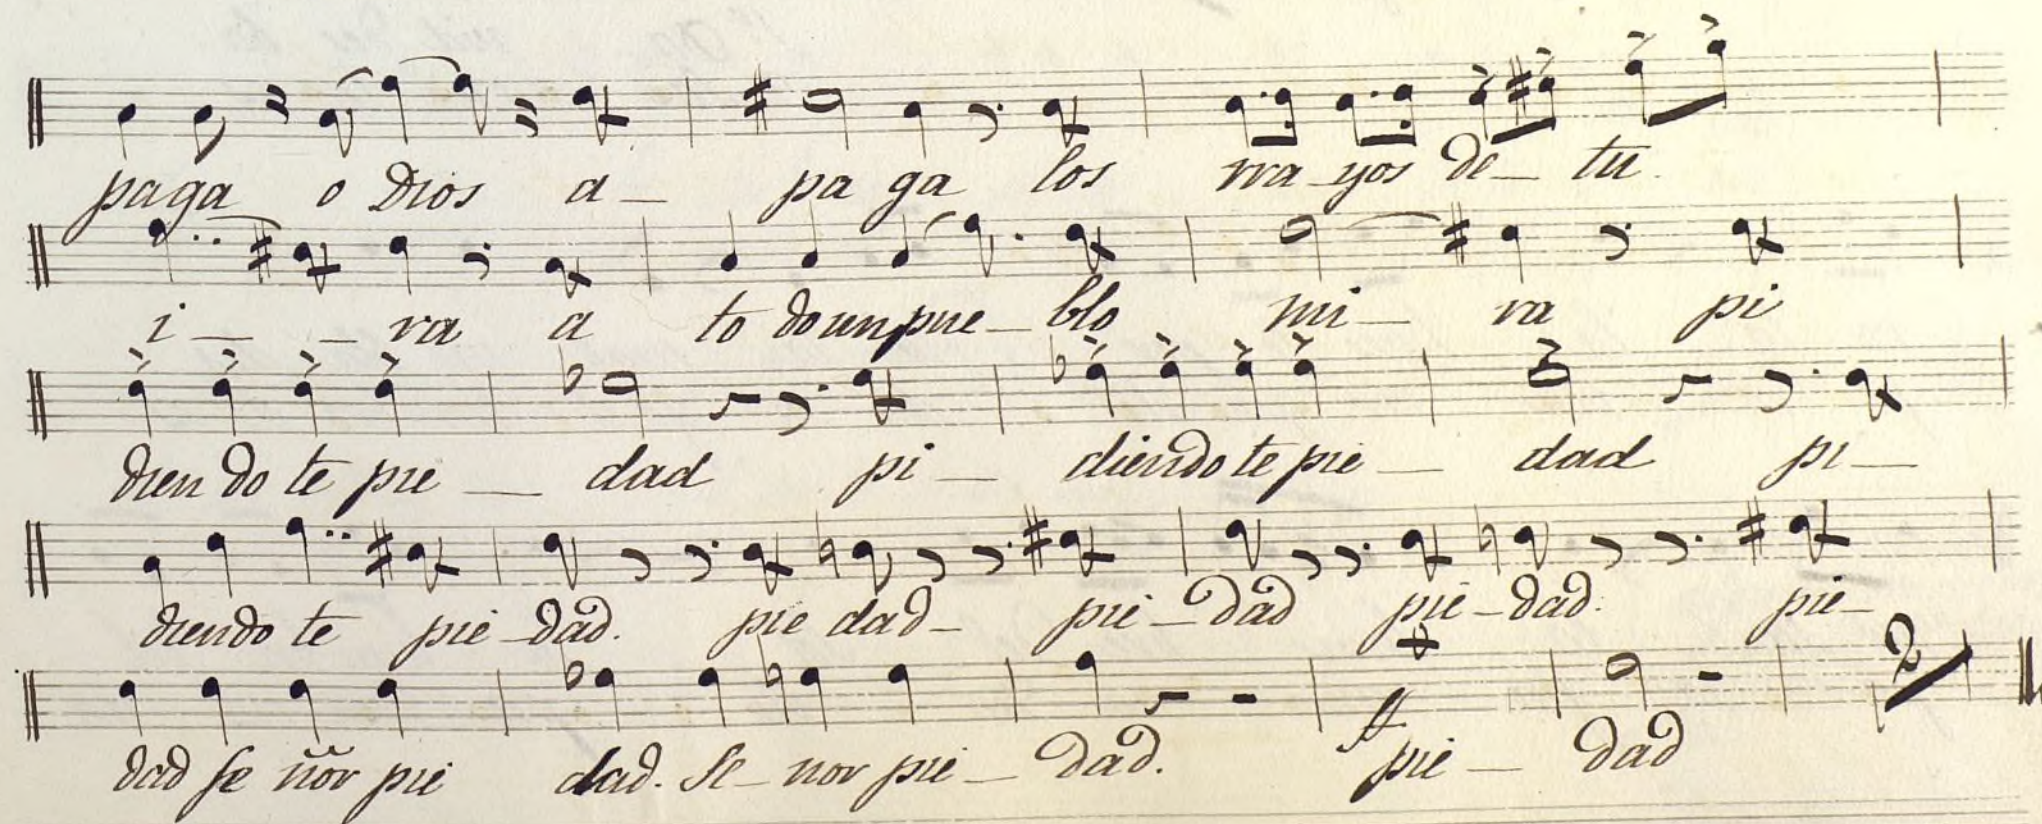 paga o Dios a_ pa ga los rra_yos de_ tu.
i_ _ra a to do un pue_blo mi_ ra pi
dien do te pie_ dad pi_ diendo te pie_ dad pi_
diendo te pie_dad. pie dad_ pie_dad pie_dad. pie_
dad se ñor pie dad. Se_nor pie_ dad. ff pie_ dad 2